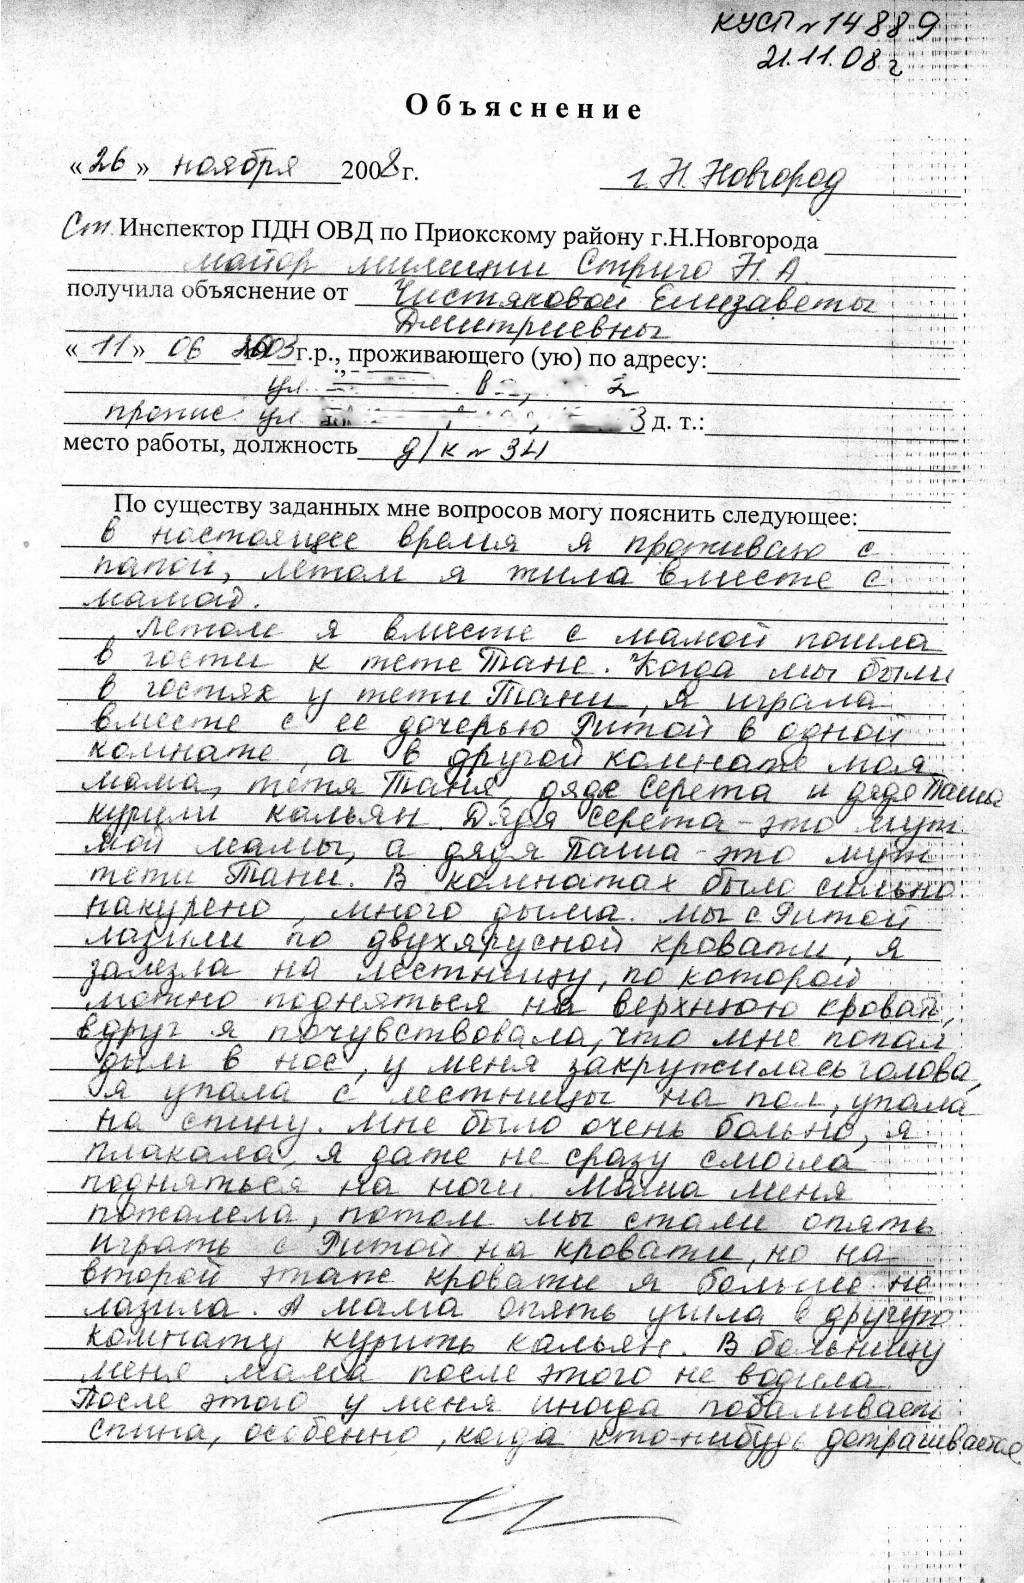 КУСП № 14889
21.11.08 г
Объяснение
«26» ноября 2008 г. г. Н. Новгород
Ст. Инспектор ПДН ОВД по Приокскому району г.Н.Новгорода
майор милиции Стриго Н. А.
получила объяснение от Чистяковой Елизаветы
Дмитриевны
«11» 06 2003 г.р., проживающего (ую) по адресу:
ул.
пропис. ул. 3 д. т.:
место работы, должность д/к № 34
По существу заданных мне вопросов могу пояснить следующее:
в настоящее время я проживаю с
папой, летом я жила вместе с
мамой.
Летом я вместе с мамой пошла
в гости к тете Тане. Когда мы были
в гостях у тети Тани, я играла
вместе с ее дочерью Ритой в одной
комнате, а в другой комнате моя
мама, тетя Таня, дядя Сережа и дядя Паша
курили кальян. Дядя Сережа - это муж
мой мамы, а дядя Паша - это муж
тети Тани. В комнатах было сильно
накурено, много дыма. Мы с Ритой
лазили по двухярусной кровати, я
залезла на лестницу, по которой
можно подняться на верхнюю кровать,
вдруг я почувствовала, что мне попал
дым в нос, у меня закружилась голова,
я упала с лестницы на пол, упала
на спину. Мне было очень больно, я
плакала, я даже не сразу смогла
подняться на ноги. Мама меня
пожалела, потом мы стали опять
играть с Ритой на кровати, но на
второй этаж кровати я больше не
лазила. А мама опять ушла в другую
комнату курить кальян. В больницу
меня мама после этого не водила.
После этого у меня иногда побаливает
спина, особенно, когда кто-нибудь дотрагивается